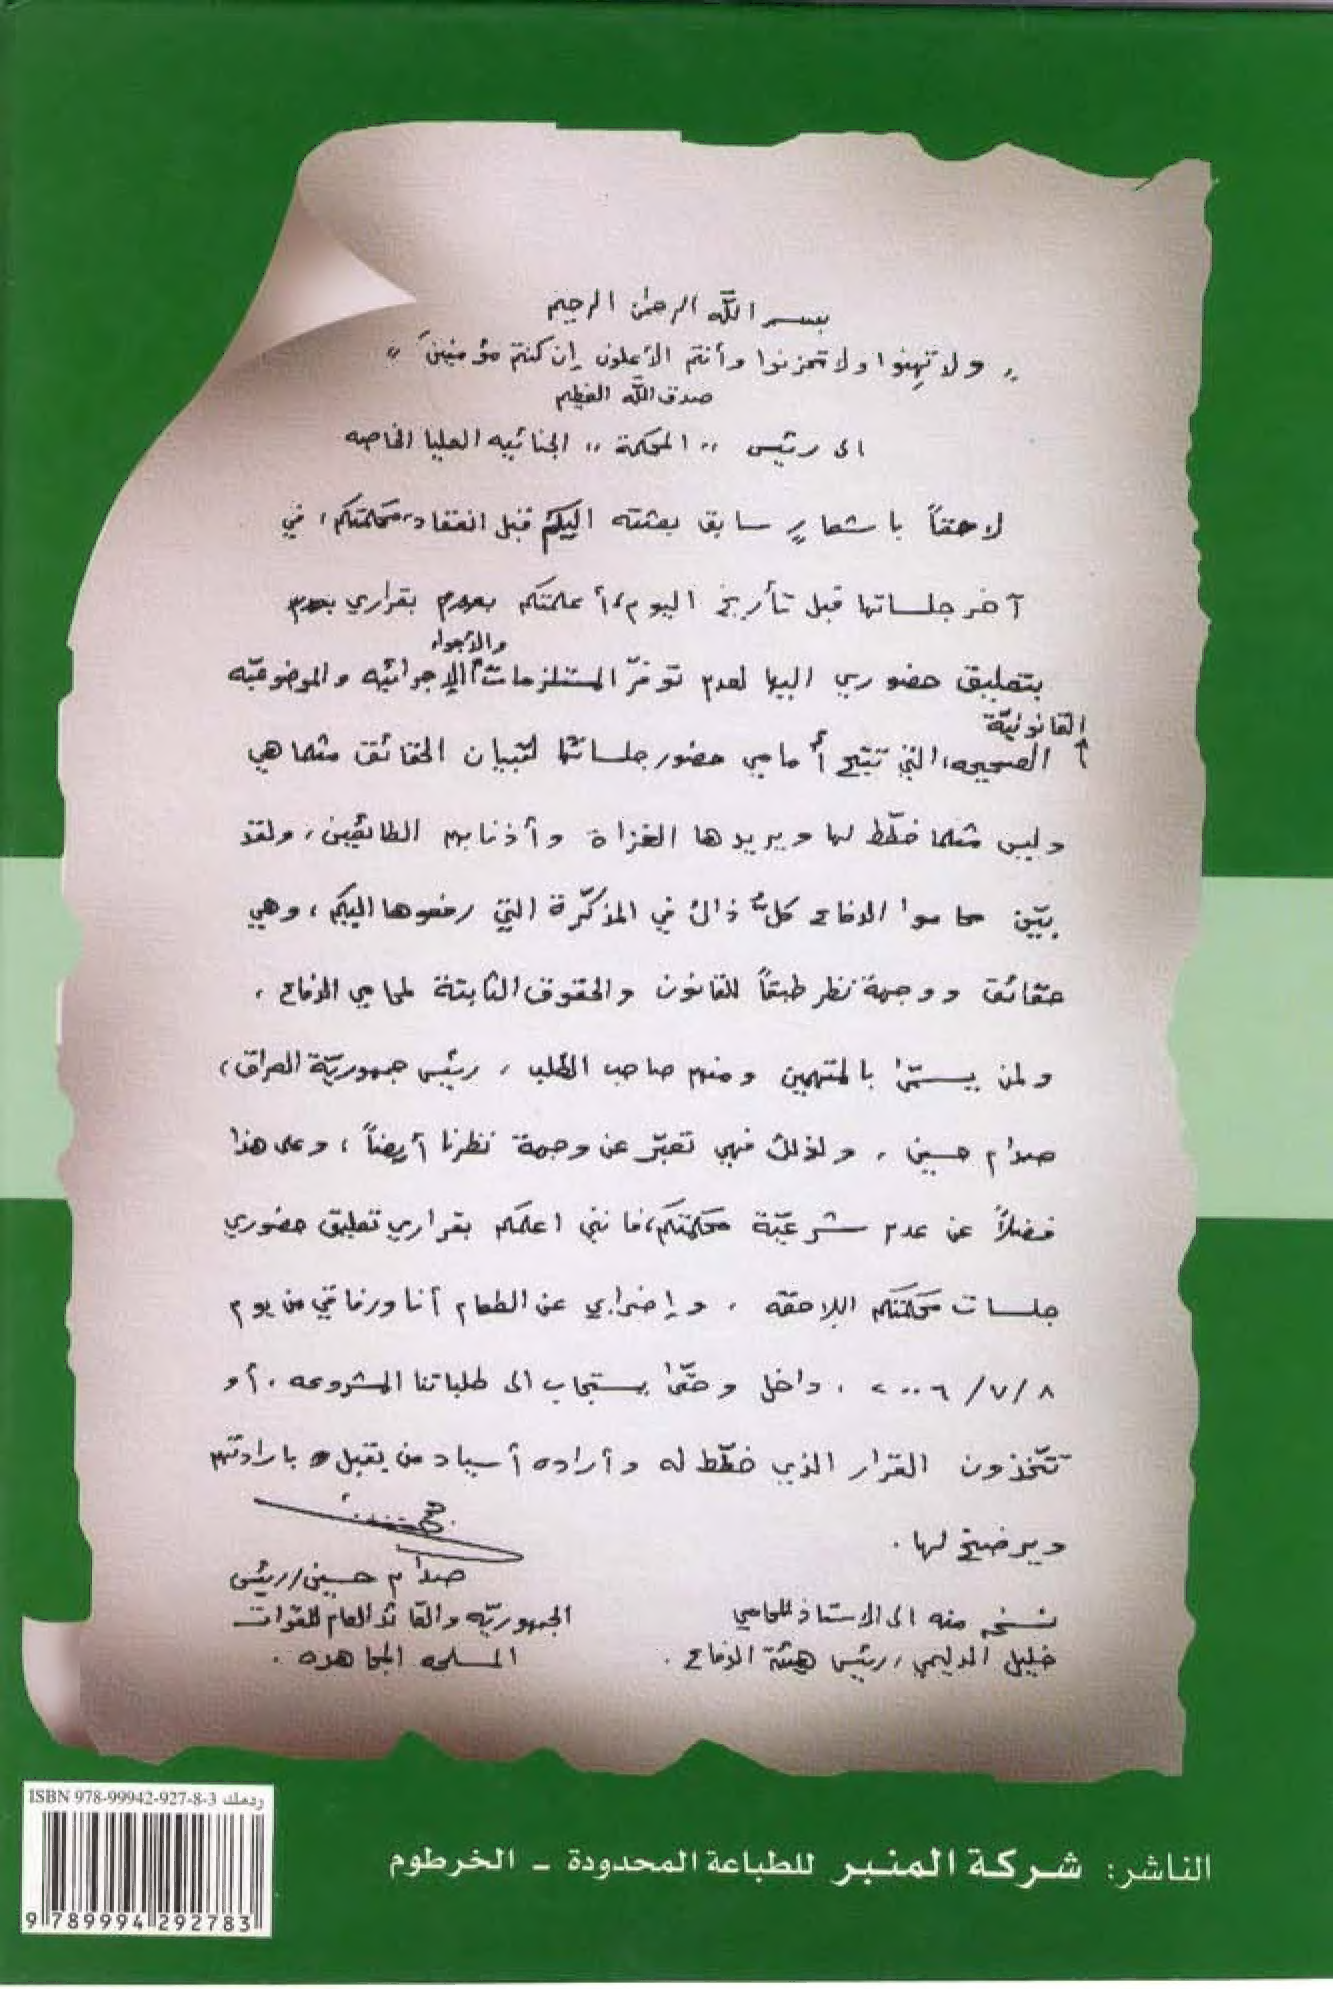 بسم الله الرحمن الرحيم
" ولا تَهِنوا ولا تحزنوا وأنتم الأعلون إن كنتم مؤمنينَ "
صدق الله العظيم
الى رئيس " المحكمة " الجنائيه العليا الخاصه
لاحقاً باشعارٍ سابق بعثته اليكم قبل انعقاد، محكمتكم، في
آخر جلساتها قبل تأريخ اليوم، أعلمتكم بقراري
والأجواء
بتعليق حضوري اليها لعدم توفّر المستلزمات الإجرائيّه والموضوعيّه
القانونيّة
الصحيحه، التي تتيح أمامي حضور جلساتها لتبيان الحقائق مثلما هي
وليس مثلما خطّط لها ويريدها الغزاة وأذنابهم الطائفيين، ولقد
بيّن محاموا الدفاع كلّ ذلك في المذكّرة التي رفعوها اليكم، وهي
حقائق ووجهة نظر طبقاً للقانون والحقوق الثابتة لمحامي الدفاع،
ولمن يسمّى بالمتهمين ومنهم صاحب الطلب، رئيس جمهوريّة العراق،
صدام حسين، ولذلك فهي تعبّر عن وجهة نظرنا أيضاً، وعلى هذا
فضلاً عن عدم شرعيّة محكمتكم، فانني اعلمكم بقراري تعليق حضوري
جلسات محكمتكم اللاحقه، وإضرابي عن الطعام أنا ورفاقي من يوم
٨/٧/٢٠٠٦، داخل وحتّى يستجاب الى طلباتنا المشروعه، أو
تتّخذون القرار الذي خطّط له وأراده أسياد من يقبل بارادتهم
ويرضخ لها.
صدام حسين/رئيس
الجمهوريّه والقائد العام للقوات
المسلحه المجاهده.
نسخه منه الى الاستاذ المحامي
خليل الدليمي، رئيس هيئة الدفاع.
ردمك ISBN 978-99942-927-8-3
9 789994 292783
الناشر: شركة المنبر للطباعة المحدودة - الخرطوم